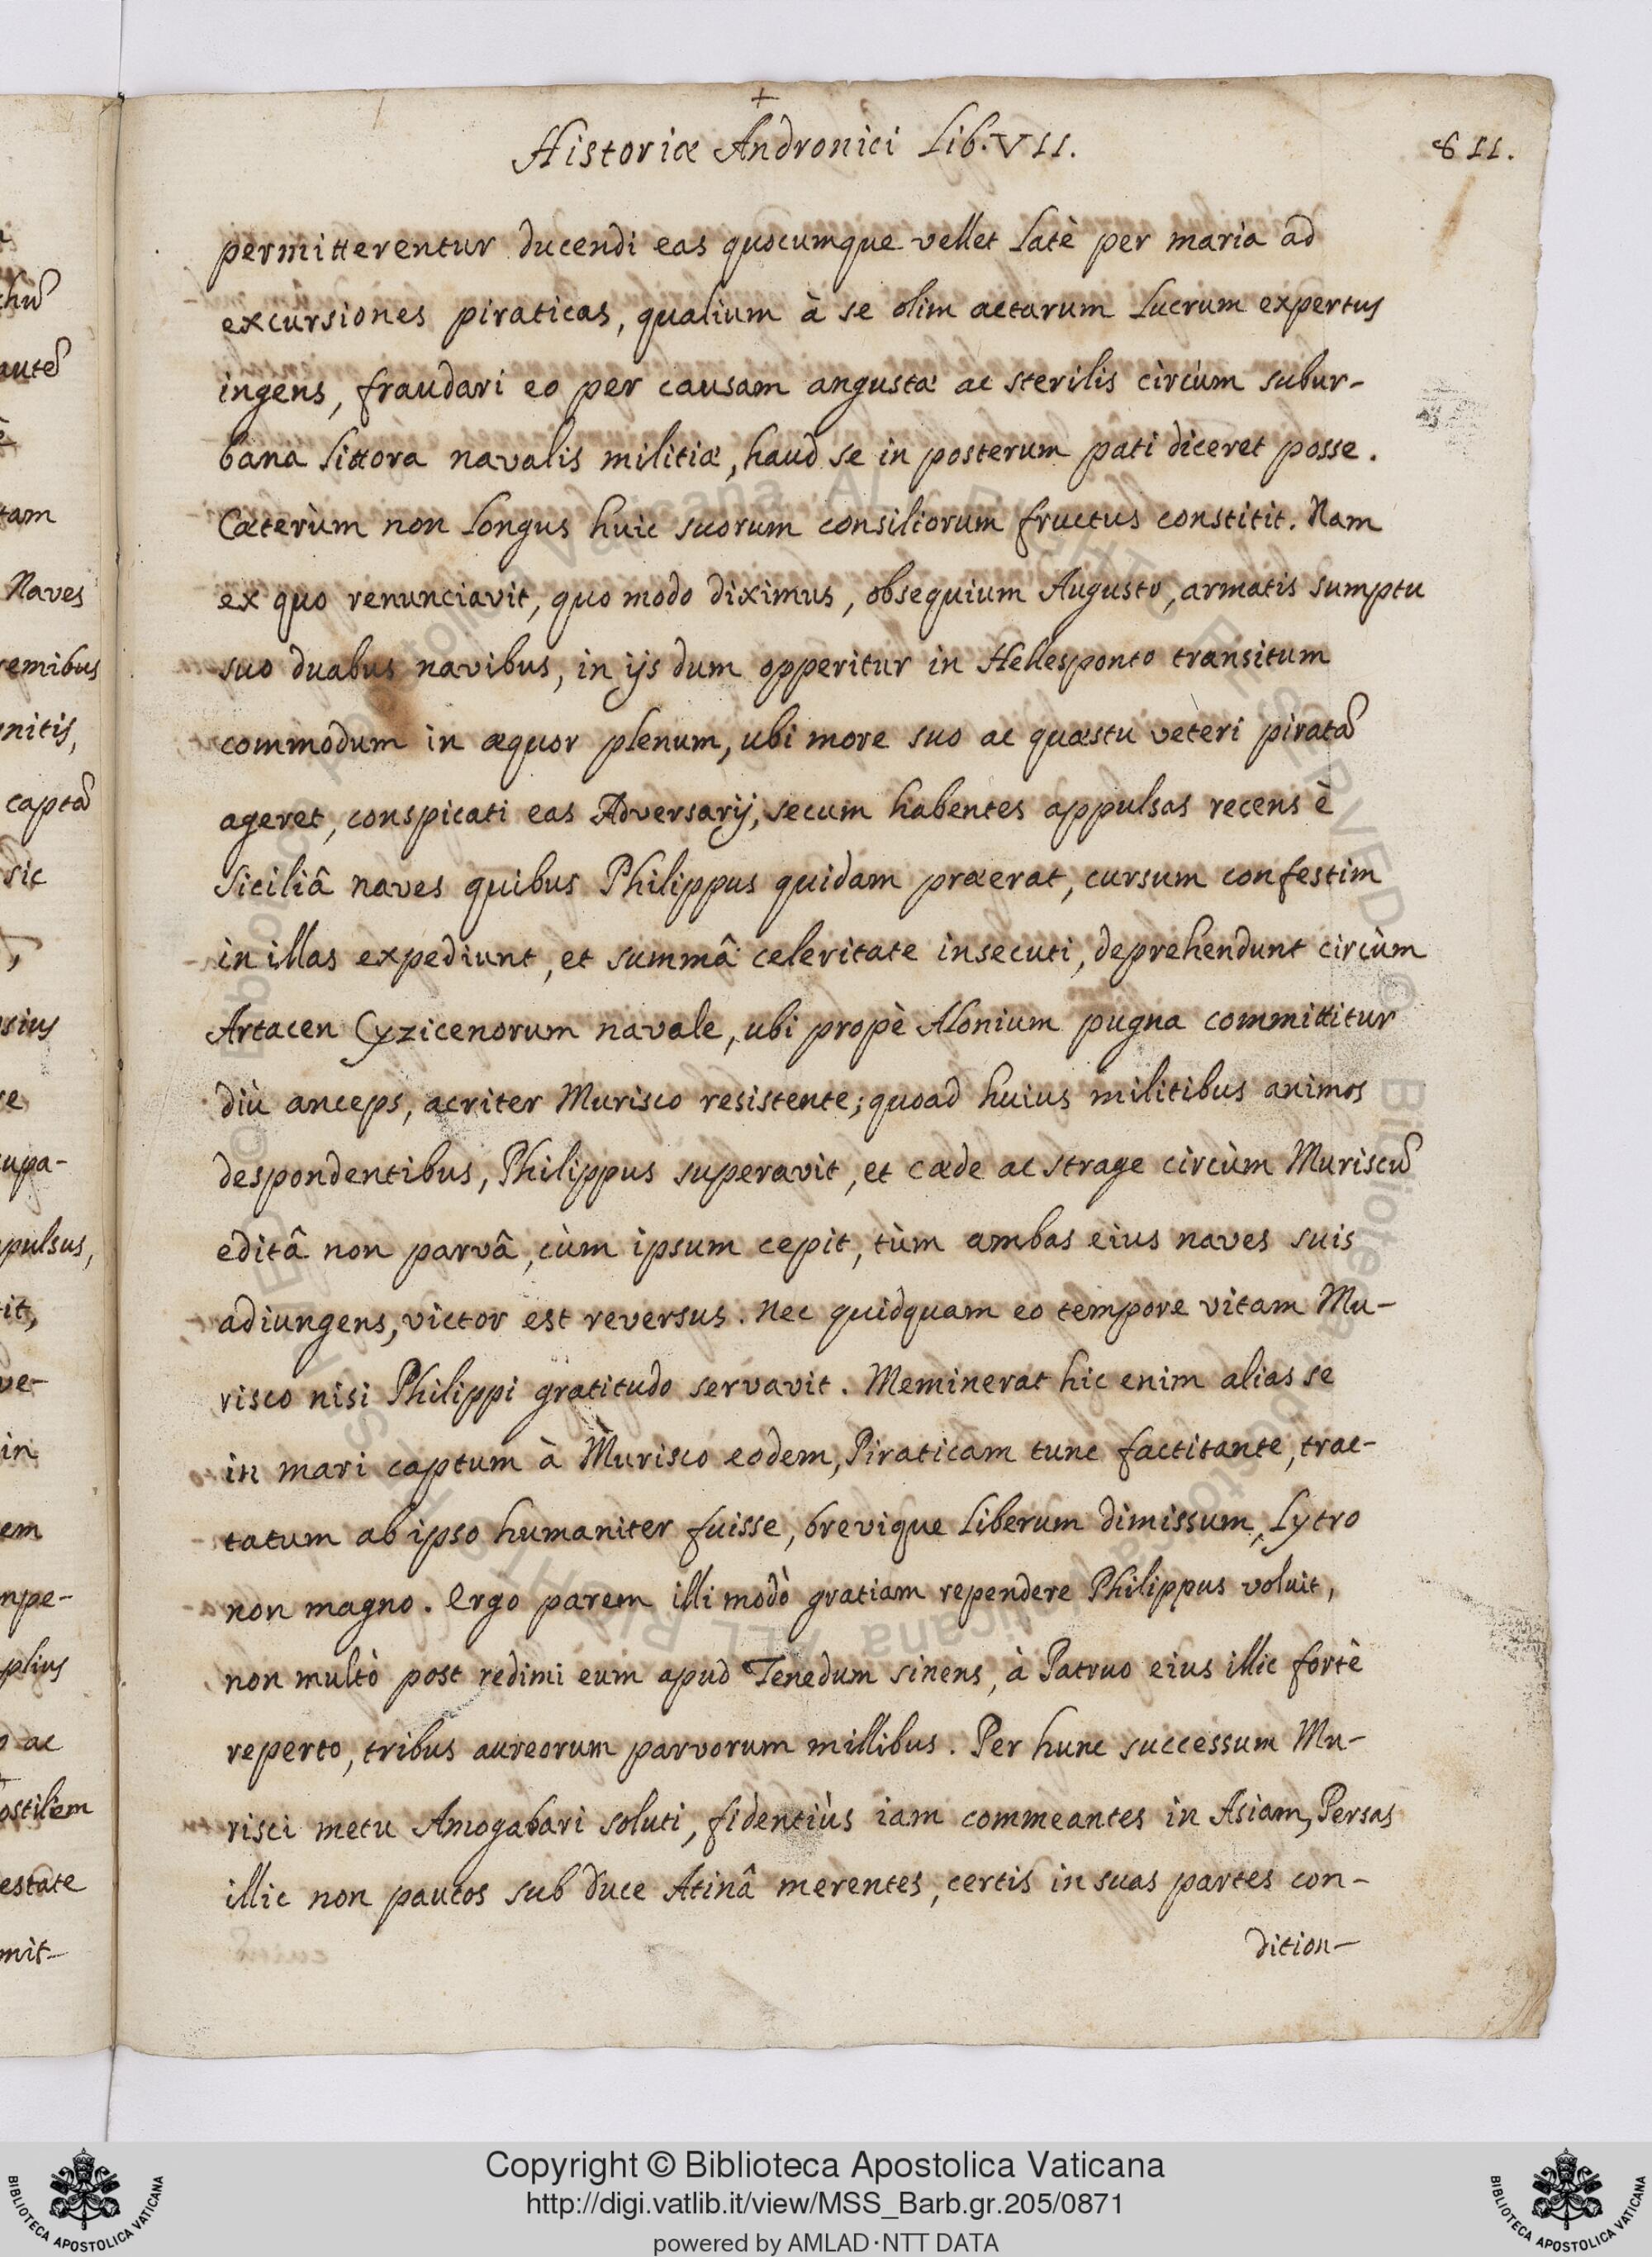 Historiæ Andronici Lib. VII.
811.
permitterentur ducendi eas quocumque vellet latè per maria ad
excursiones piraticas, qualium à se olim actarum lucrum expertus
ingens, fraudari eo per causam angustæ ac sterilis circùm subur-
bana littora navalis militiæ, haud se in posterum pati diceret posse.
Cæterùm non longus huic suorum consiliorum fructus constitit. Nam
ex quo renunciavit, quo modo diximus, obsequium Augusto, armatis sumptu
suo duabus navibus, in ijs dum opperitur in Hellesponto transitum
commodum in æquor plenum, ubi more suo ac quæstu veteri piratã
ageret, conspicati eas Adversarij, secum habentes appulsas recens è
Siciliâ naves quibus Philippus quidam præerat, cursum confestim
in illas expediunt, et summâ celeritate insecuti, deprehendunt circùm
Artacen Cyzicenorum navale, ubi propè Alonium pugna committitur
diù anceps, acriter Murisco resistente; quoad huius militibus animos
despondentibus, Philippus superavit, et cæde ac strage circùm Muriscũ
editâ non parvâ, cùm ipsum cepit, tùm ambas eius naves suis
adiungens, victor est reversus. Nec quidquam eo tempore vitam Mu-
risco nisi Philippi gratitudo servavit. Meminerat hic enim alias se
in mari captum à Murisco eodem, Piraticam tunc factitante, trac-
tatum ab ipso humaniter fuisse, brevique liberum dimissum, Lytro
non magno. Ergo parem illi modò gratiam rependere Philippus voluit,
non multò post redimi eum apud Tenedum sinens, à Patruo eius illic fortè
reperto, tribus aureorum parvorum millibus. Per hunc successum Mu-
risci metu Amogabari soluti, fidentiùs iam commeantes in Asiam, Persas
illic non paucos sub duce Atinâ merentes, certis in suas partes con-
dition-
Naves
captã
sic
pulsus,
in
ac
Copyright © Biblioteca Apostolica Vaticana
http://digi.vatlib.it/view/MSS_Barb.gr.205/0871
powered by AMLAD·NTT DATA
BIBLIOTECA APOSTOLICA VATICANA
BIBLIOTECA APOSTOLICA VATICANA